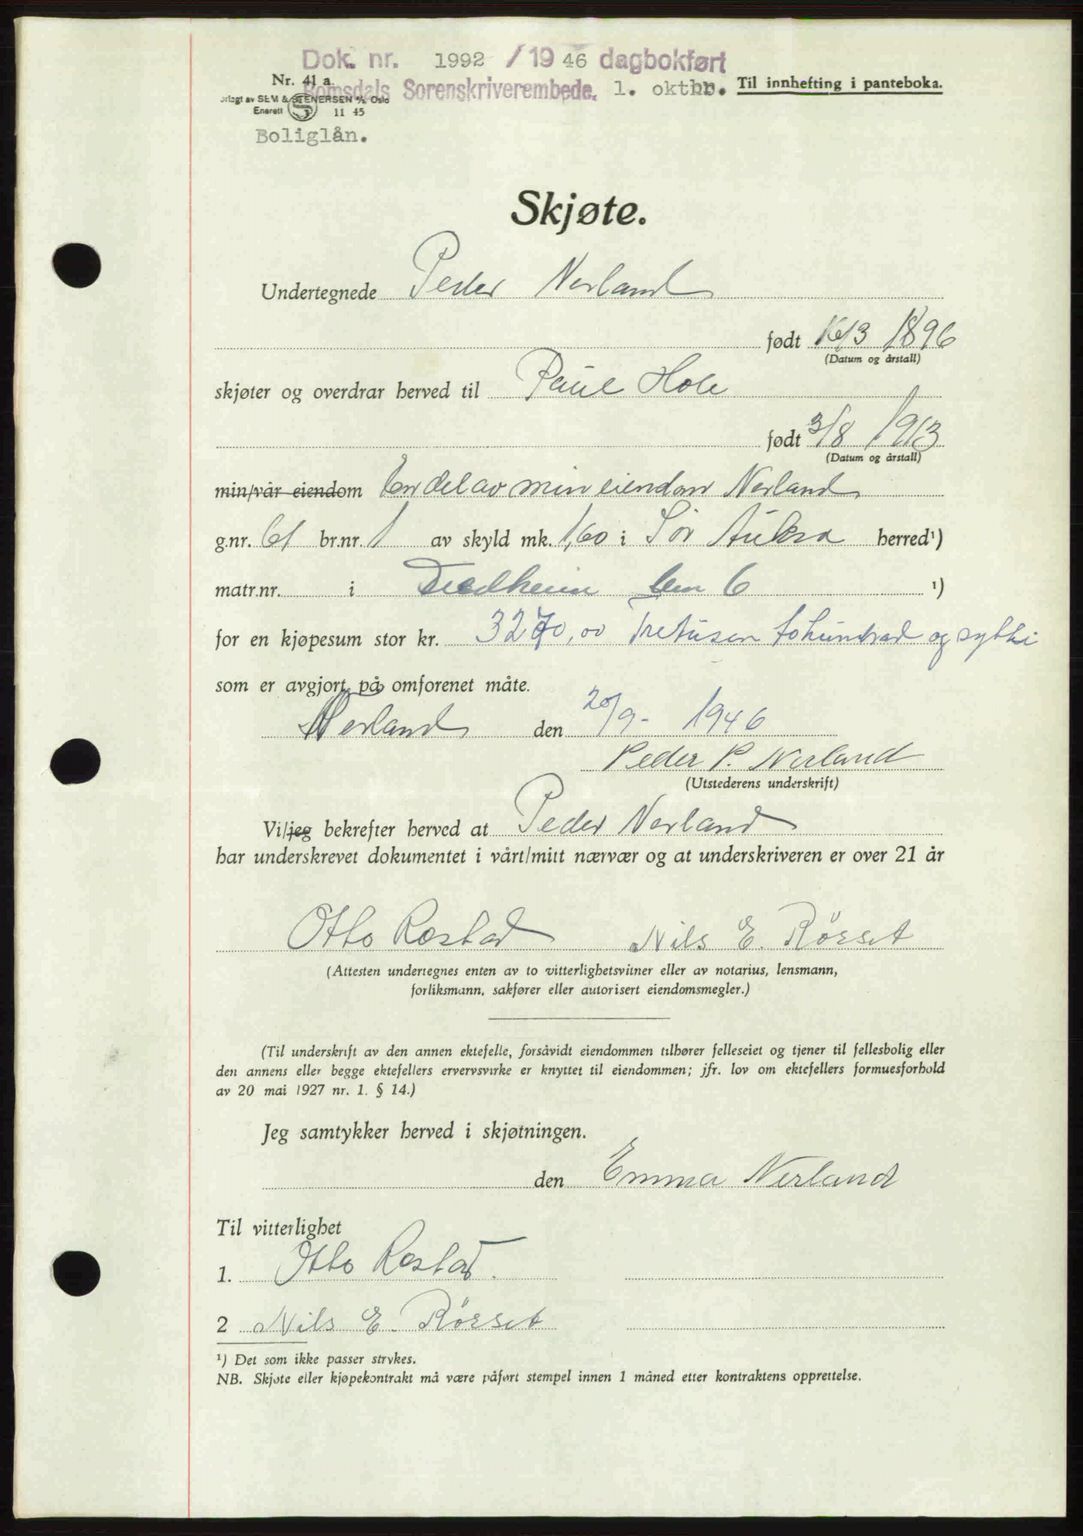 Dok. nr. 1992 / 19 46 dagbokført
Nr. 41 a.
Romsdals Sorenskriverembede. 1. oktbr. Til innhefting i panteboka.
SEM & STENERSEN A/S Oslo
Enerett 11 45
Boliglån.
Skjøte.
Undertegnede Peder Nerland
født 16/3 1896
(Datum og årstall)
skjøter og overdrar herved til Paul Hole
født 3/8 1913
(Datum og årstall)
min/vår eiendom En del av min eiendom Nerland
g.nr. 61 br.nr. 1 av skyld mk. 1,60 i Sør Aukra herred¹)
matr.nr. i 6 ¹)
for en kjøpesum stor kr. 3270,00 Tretusen tohundrad og sytti
som er avgjort på omforenet måte.
Nerland den 20/9- 1946
Peder P. Nerland
(Utstederens underskrift)
Vi/jeg bekrefter herved at Peder Nerland
har underskrevet dokumentet i vårt/mitt nærvær og at underskriveren er over 21 år
Otto Rostad Nils E. Rørset
(Attesten undertegnes enten av to vitterlighetsvitner eller av notarius, lensmann,
forliksmann, sakfører eller autorisert eiendomsmegler.)
(Til underskrift av den annen ektefelle, forsåvidt eiendommen tilhører felleseiet og tjener til fellesbolig eller
den annens eller begge ektefellers ervervsvirke er knyttet til eiendommen; jfr. lov om ektefellers formuesforhold
av 20 mai 1927 nr. 1. § 14.)
Jeg samtykker herved i skjøtningen.
den Emma Nerland
Til vitterlighet
1. Otto Rostad.
2 Nils E. Rørset
¹) Det som ikke passer strykes.
NB. Skjøte eller kjøpekontrakt må være påført stempel innen 1 måned etter kontraktens opprettelse.